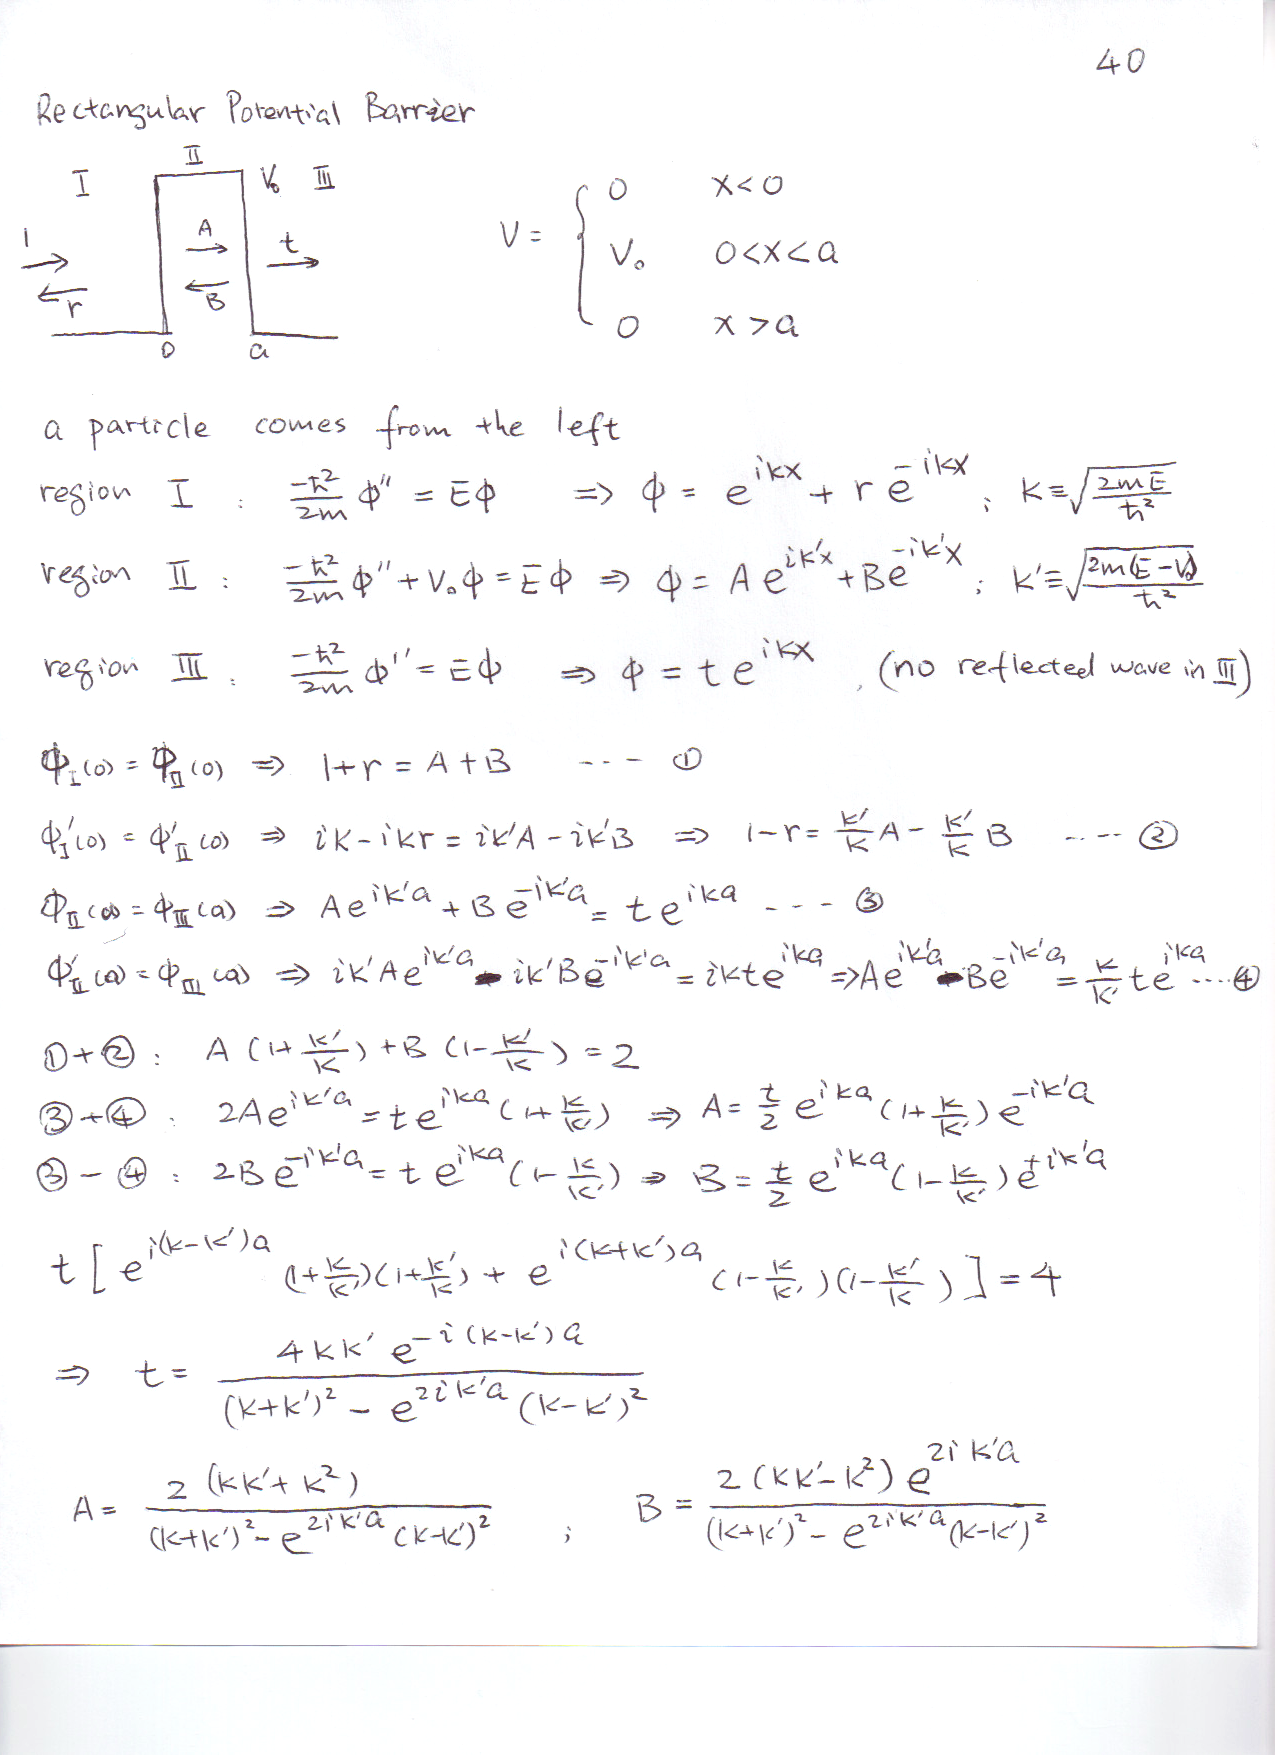 40
Rectangular Potential Barrier
I II V₀ III
1 r A B t
0 a
V = { 0 x<0
V₀ 0<x<a
0 x>a
a particle comes from the left
region I : -ħ²/2m ϕ'' = Eϕ ⇒ ϕ = e^{ikx} + r e^{-ikx} ; k ≡ √(2mE/ħ²)
region II : -ħ²/2m ϕ'' + V₀ϕ = Eϕ ⇒ ϕ = A e^{ik'x} + B e^{-ik'x} ; k' ≡ √(2m(E-V₀)/ħ²)
region III : -ħ²/2m ϕ'' = Eϕ ⇒ ϕ = t e^{ikx} , (no reflected wave in III)
ϕ_I(0) = ϕ_II(0) ⇒ 1+r = A+B --- ①
ϕ'_I(0) = ϕ'_II(0) ⇒ ik-ikr = ik'A-ik'B ⇒ 1-r = k'/k A - k'/k B ---- ②
ϕ_II(a) = ϕ_III(a) ⇒ A e^{ik'a} + B e^{-ik'a} = t e^{ika} --- ③
ϕ'_II(a) = ϕ_III(a) ⇒ ik'A e^{ik'a} - ik'B e^{-ik'a} = ikt e^{ika} ⇒ A e^{ik'a} - B e^{-ik'a} = k/k' t e^{ika} ---- ④
①+② : A (1+k'/k) + B (1-k'/k) = 2
③+④ : 2A e^{ik'a} = t e^{ika} (1+k/k') ⇒ A = t/2 e^{ika} (1+k/k') e^{-ik'a}
③-④ : 2B e^{-ik'a} = t e^{ika} (1-k/k') ⇒ B = t/2 e^{ika} (1-k/k') e^{+ik'a}
t [ e^{i(k-k')a} (1+k/k')(1+k'/k) + e^{i(k+k')a} (1-k/k')(1-k'/k) ] = 4
⇒ t = 4kk' e^{-i(k-k')a} / ((k+k')² - e^{2ik'a} (k-k')²)
A = 2(kk'+k²) / ((k+k')² - e^{2ik'a} (k-k')²) ; B = 2(kk'-k²) e^{2ik'a} / ((k+k')² - e^{2ik'a} (k-k')²)